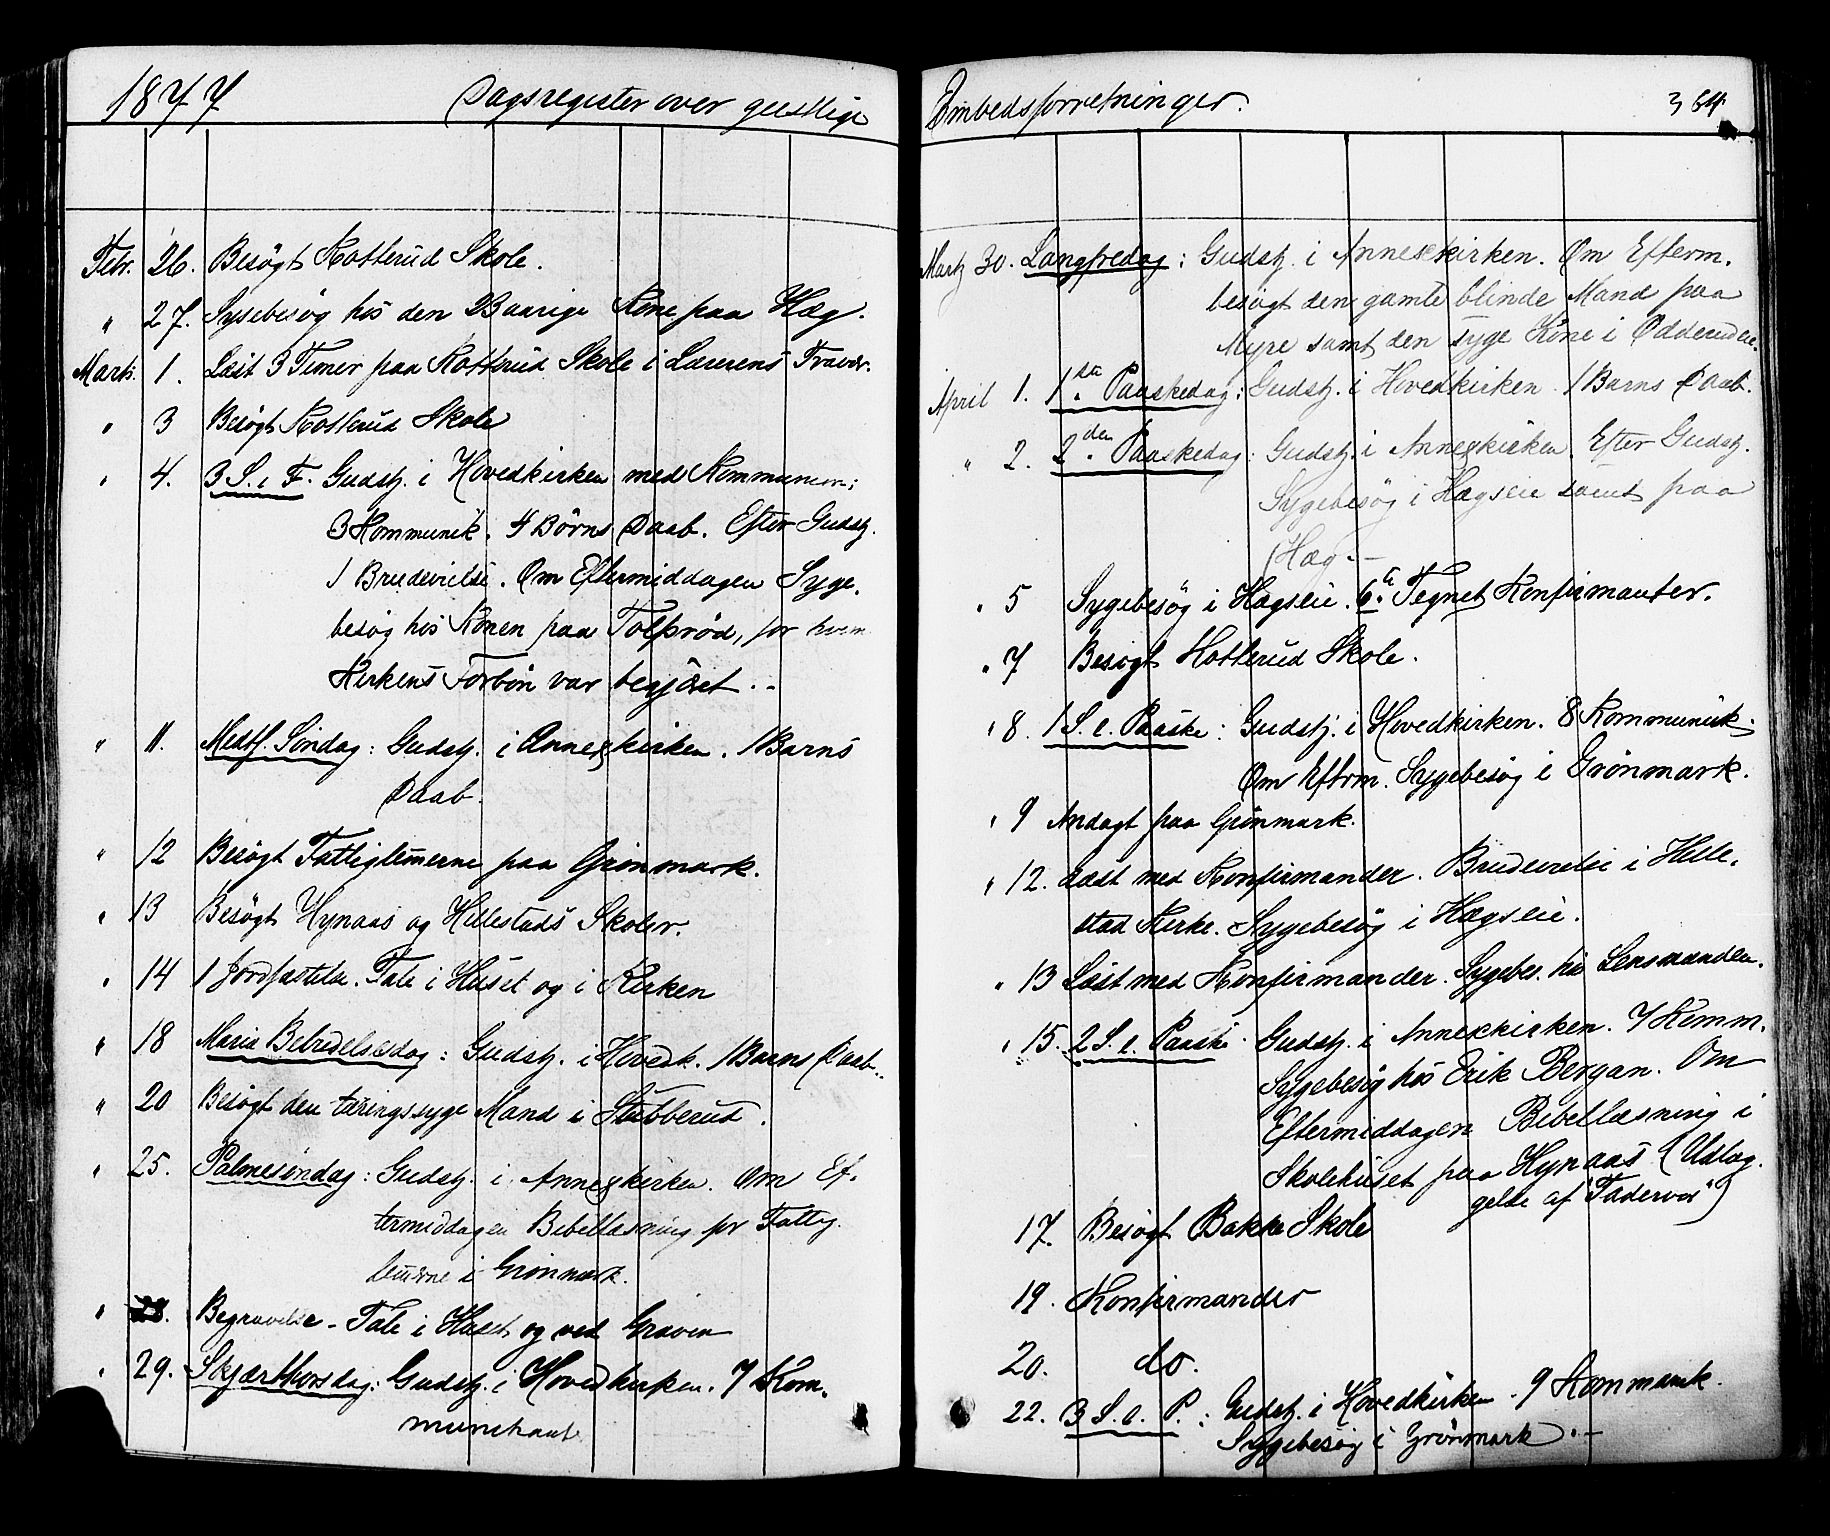 1877 Dagsregister over geistlige
Febr. 26. Besögt Kotterud Skole.
" 27. Sygebesög hos den Kone paa Hæg.
Marts. 1. Læst 3 Timer paa Kotterud Skole i Lærerens Fravær.
" 3 Besögt Kotterud Skole
" 4. 3 S. i F. Gudstj. i Hovedkirken med Kommunion;
3 Kommunik. 4 Börns Daab. Efter Gudstj.
1 Brudevielse. Om Eftermiddagen Syge,
besög hos Konen paa Tolfsrød, for hvem
Kirkens Forbön var begjæret.-
" 11. Midtf. Söndag: Gudstj. i Annexkirken. 1 Barns
Daab.
" 12 Besögt Fattiglemerne paa Grönmark.
" 13 Besögt Hynaas og Hillestads Skoler.
" 14 1 Jordfæstelse. Tale i Huset og i Kirken
" 18 Maria Bebudelsesdag: Gudstj. i Hovedk. 1 Barns Daab..
" 20 Besögt den tæringssyge Mand i Stubberud.
" 25. Palmesöndag: Gudstj. i Annexkirken. Om Ef-
termiddagen Bibellæsning for Fattig-
lemerne i Grönmark.
" 28. Begravelse - Tale i Huset og ved Graven
" 29. Skjærthorsdag: Gudstj. i Hovedkirken. 7 Kom-
munikant
Embedsforretninger. 364.
Marts 30. Langfredag: Gudstj. i Annexkirken. Om Efterm.
besögt den gamle blinde Mand paa
Myre samt den syge Kone i Odderudeie.
April 1. 1ste Paaskedag: Gudstj. i Hovedkirken. 1 Barns Daab.
" 2. 2den Paaskedag: Gudstj. i Annexkirken. Efter Gudstj.
Sygebesög i Hægseie samt paa
Hæg.-
" 5 Sygebesög i Hægseie. Tegnet Konfirmanter.
" 7 Besögt Kotterud Skole.
" 8. 1 S. e. Paaske: Gudstj. i Hovedkirken. 8 Kommunik.
Om Efterm. Sygebesög i Grönmark.
" 9 Andagt paa Grönmark.
" 12. Læst med Konfirmander. Brudevielse i Hille-
stad Kirke. Sygebesög i Hægseie.
" 13 Læst med Konfirmander. Sygebes. hos Lensmanden.
" 15. 2 S. e. Paaske Gudstj. i Annexkirken. 7 Komm.
Sygebesög hos Erik Bergan. Om
Eftermiddagen Bibellæsning i
Skolehuset paa Hynaas (Udlæg-
gelse af "Fadervor")
17. Besögt Bakke Skole
19. Konfirmander
20. do.
22. 3 S. e. P.: Gudstj. i Hovedkirken. 9 Kommunik.
Sygebesög i Grönmark.-